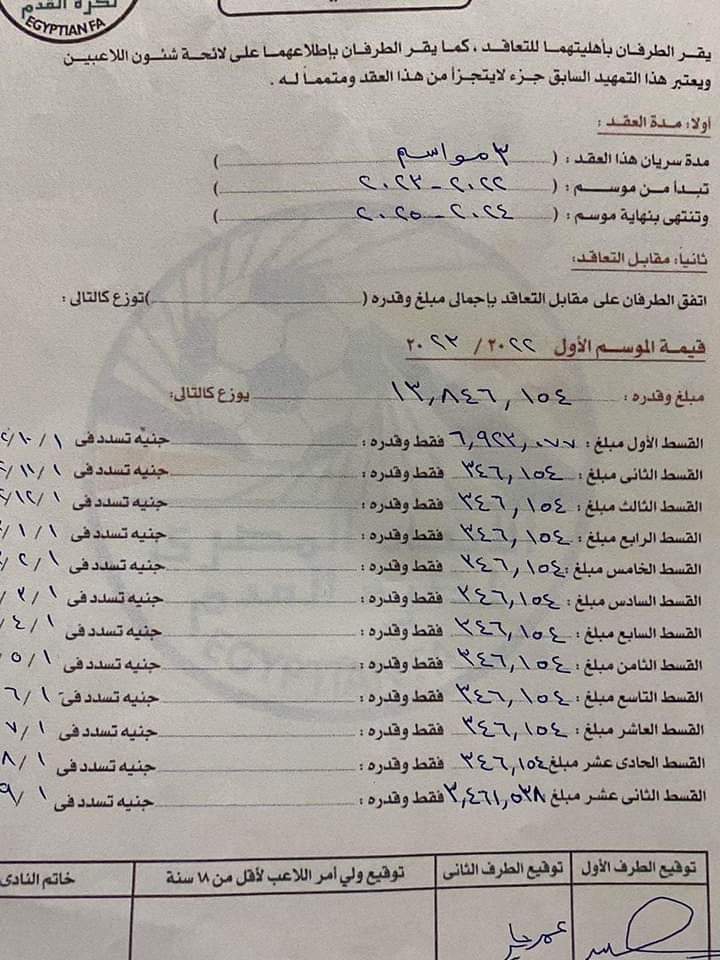 لكرة القدم
EGYPTIAN FA
يقـر الطرفـان بـأهليتهمـا للتعاقـد ، كمـا يقـر الطرفـان بإطلاعهمـا علـى لائحـة شئـون اللاعبيـن
ويعتبـر هـذا التمهيـد السابـق جـزء لايتجـزأ مـن هـذا العقـد ومتممـاً لـه .
أولا: مـدة العقـد :
مدة سريان هذا العقد : ( ٣ مواسم )
تبـدأ مـن موسـم : ( ٢٠٢٢ - ٢٠٢٣ )
وتنتهى بنهاية موسم : ( ٢٠٢٤ - ٢٠٢٥ )
ثانيـاً: مقابـل التعاقـد:
اتفق الطرفان على مقابل التعاقد بإجمالى مبلغ وقدره ( )توزع كالتالى :
قيمـة الموسـم الأول ٢٠٢٢ / ٢٠٢٣
مبلـغ وقـدره : ١٣,٨٤٦,١٥٤ يوزع كالتالى:
القسط الأول مبلغ : ٦,٩٢٣,٠٧٧ فقط وقدره : جنيه تسدد فى ١٠/١
القسط الثانى مبلغ : ٣٤٦,١٥٤ فقط وقدره : جنيه تسدد فى ١١/١
القسط الثالث مبلغ : ٣٤٦,١٥٤ فقط وقدره : جنيه تسدد فى ١٢/١
القسط الرابع مبلغ : ٣٤٦,١٥٤ فقط وقدره : جنيه تسدد فى ١/١
القسط الخامس مبلغ : ٣٤٦,١٥٤ فقط وقدره : جنيه تسدد فى ٢/١
القسط السادس مبلغ : ٣٤٦,١٥٤ فقط وقدره : جنيه تسدد فى ٣/١
القسط السابع مبلغ : ٣٤٦,١٥٤ فقط وقدره : جنيه تسدد فى ٤/١
القسط الثامن مبلغ : ٣٤٦,١٥٤ فقط وقدره : جنيه تسدد فى ٥/١
القسط التاسع مبلغ : ٣٤٦,١٥٤ فقط وقدره : جنيه تسدد فى ٦/١
القسط العاشر مبلغ : ٣٤٦,١٥٤ فقط وقدره : جنيه تسدد فى ٧/١
القسط الحادى عشر مبلغ ٣٤٦,١٥٤ فقط وقدره : جنيه تسدد فى ٨/١
القسط الثانى عشر مبلغ ٣,٤٦١,٥٣٨ فقط وقدره : جنيه تسدد فى ٩/١
توقيع الطرف الأول توقيع الطرف الثانى توقيع ولي أمر اللاعب لأقل من ١٨ سنة خاتم النادى